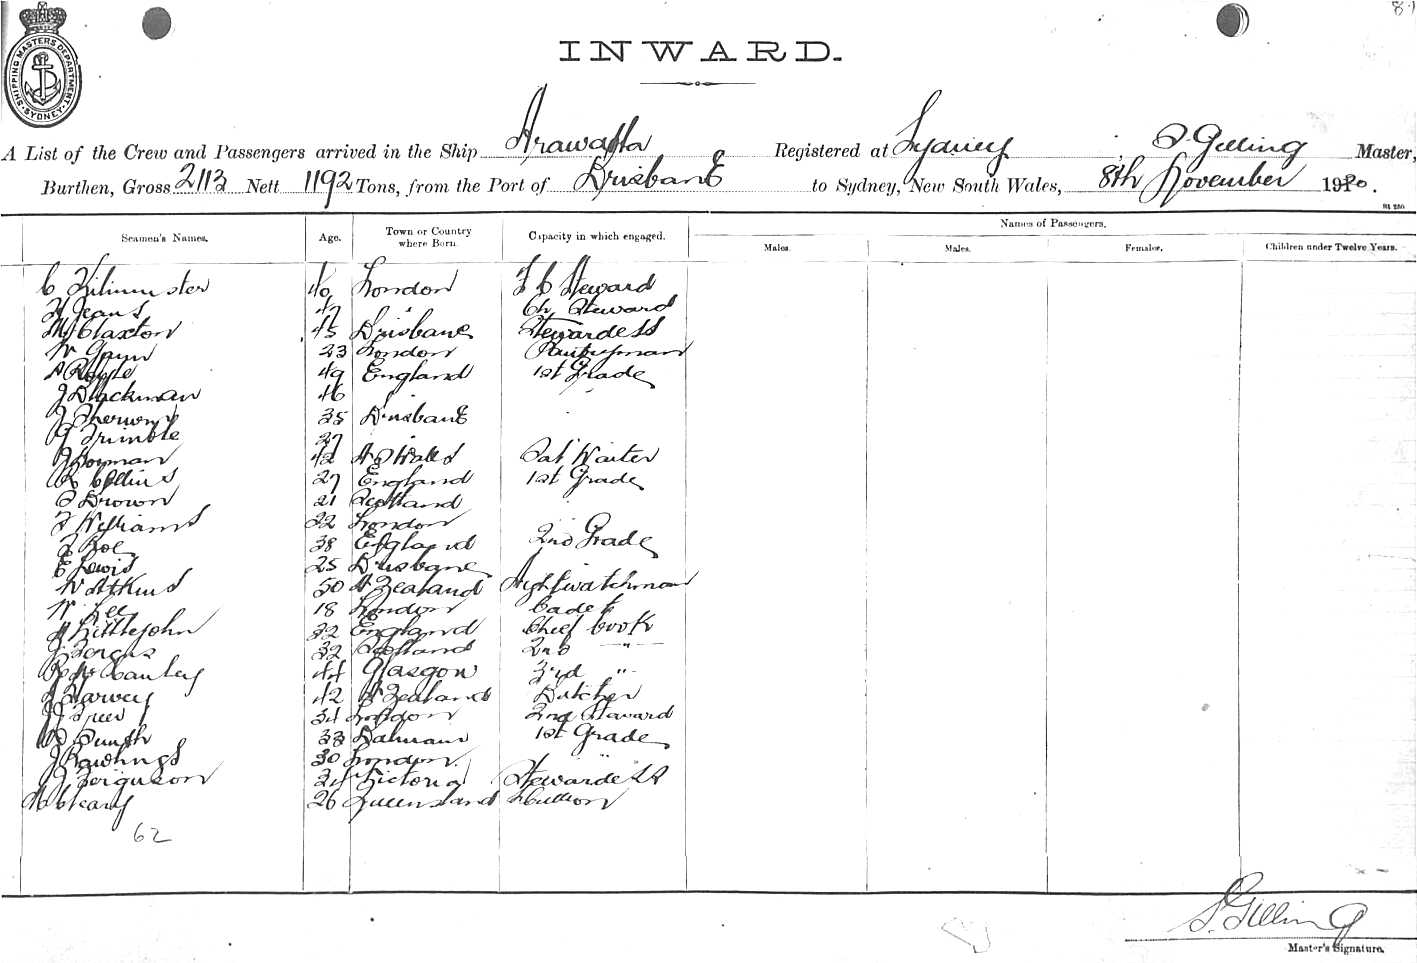 SHIPPING MASTERS DEPARTMENT. SYDNEY
INWARD.
A List of the Crew and Passengers arrived in the Ship Registered at Sydney, S Gelling Master,
Burthen, Gross 2113 Nett 1192 Tons, from the Port of Brisbane to Sydney, New South Wales, 8th November 1920.
Seamen's Names. Age. Town or Country where Born. Capacity in which engaged. Names of Passengers.
Males. Males. Females. Children under Twelve Years.
C Kilminster 40 London F C Steward
H Jeans 47 " Ch Steward
M Claxton 45 Brisbane Stewardess
W Gann 23 London Pantryman
A 49 England 1st Grade
J Blackman 46
J 35 Brisbane
G Trimble 27
J Bowman 42 N S Wales Sal Waiter
R Collins 27 England 1st Grade
S Brown 21 Scotland
F Williams 22 London
38 England 2nd Grade
E Lewis 25 Brisbane
W Atkins 50 N Zealand Nightwatchman
W Lee 18 London Cadet
A Littlejohn 32 England Chief Cook
J 32 Scotland 2nd "
44 Glasgow 3rd "
J Harvey 42 N Zealand Butcher
J 34 London 2nd Steward
33 Balmain 1st Grade
J Rawlings 30 London "
J Ferguson Victoria Stewardess
26 Queensland Scullion
62
S. Gelling
Master's Signature.